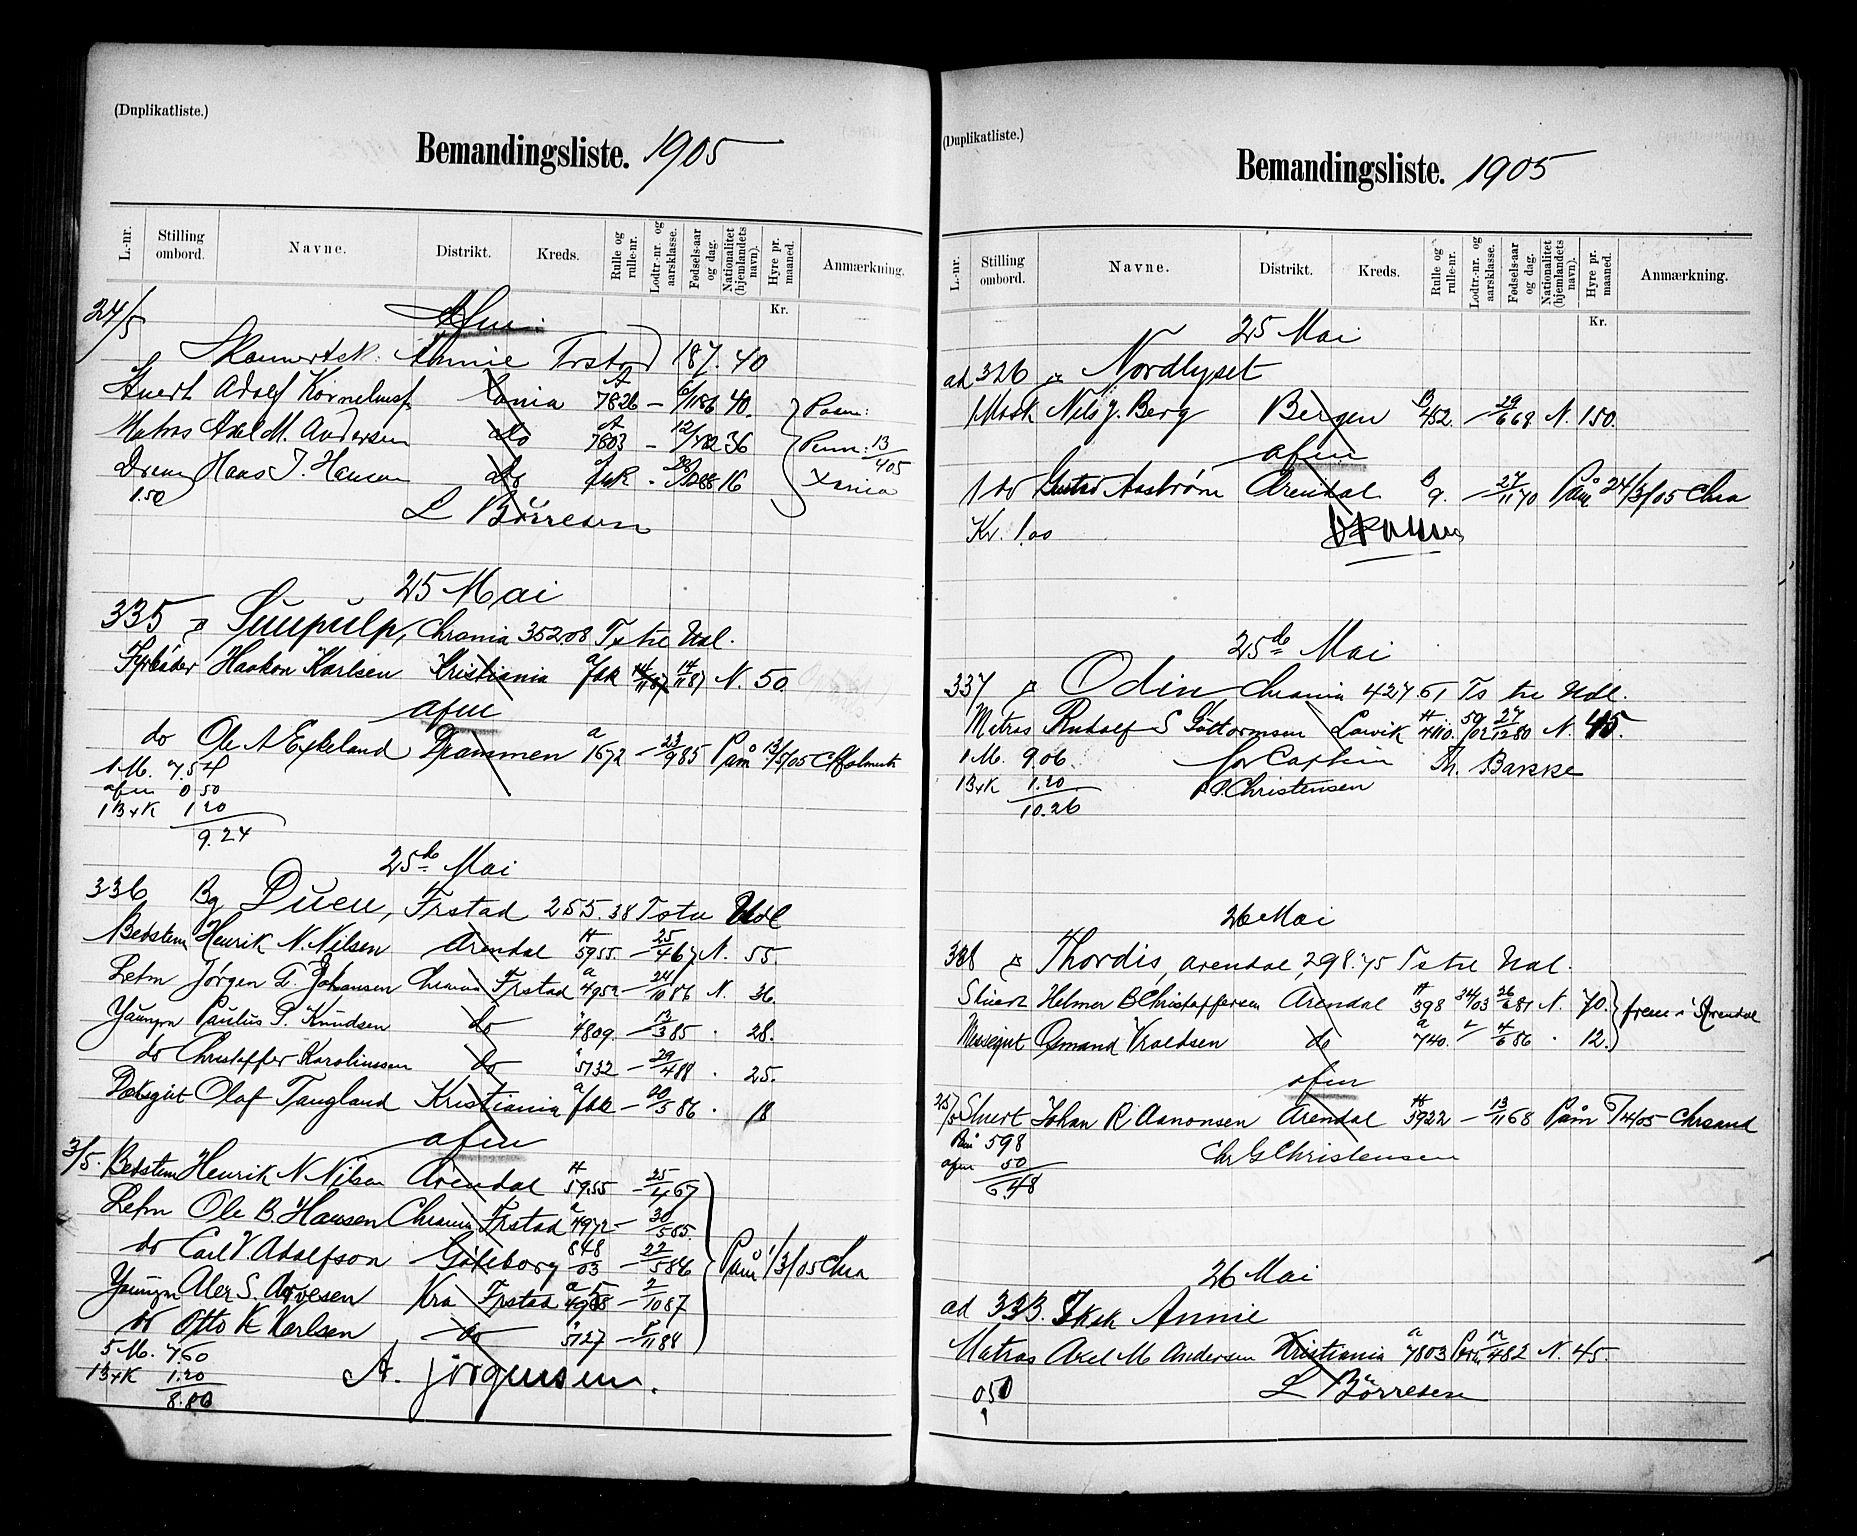 (Duplikatliste.)
Bemandingsliste. 1905
L.-nr. Stilling ombord. Navne. Distrikt. Kreds. Rulle og rulle-nr. Lodtr.-nr. og aarsklasse. Fødsels-aar og dag. Nationalitet (hjemlandets navn). Hyre pr. maaned. Anmærkning.
Kr.
24/5 Afm
Annie Frstad 187.40
Stuert Adolf Kornelius 7826 — 6/1186 40.
Matros Axel M. Andersen do A 7803 — 12/482 36
Hans J. Hansen do 16
1.50 L Børresen
25 Mai
335 Sunpulp, Chrania 352.08 Ts tre Udl.
Fyrbøder Haakon Karlsen Kristiania 14/1187 N. 50
afm
do Ole A Eykeland Drammen a 1672 — 23/985 Paam 13/5/05
1 M. 7.54
afm 0 50
1 B+K 1 20
9.24
25de Mai
336 Bg Duen, Frstad 255.38 Ts tre Udl
Bedstem Henrik N. Nilsen Arendal A 5955 — 25/467 N. 55.
Letm Jørgen L. Johansen Chrania Frstad a 4952 — 24/1086 N. 36.
Jaungm Paulus P. Knudsen do " 4809. — 13/385 . 28.
do Christoffer Karolinssen do " 5132 — 29/488 . 25.
Dæksgut Olaf Taugland Kristiania — 20/586 . 18
afm
3/5. Bedstem Henrik N Nilsen Arendal A 5955 — 25/467
Letm Ole B. Hansen Chrania Frstad a 4972 — 30/585.
do Carl V. Adolfson Göteborg 848/03 — 22/586 Paam 1/3/05 Chra
Jaungm S. Arvesen Kra Frstad — 2/1087
do Otto K Karlsen do " 5127 —
5 M. 7.60
1 B+K 1.20
8.80
A. Jörgensen.
(Duplikatliste.)
Bemandingsliste. 1905
L.-nr. Stilling ombord. Navne. Distrikt. Kreds. Rulle og rulle-nr. Lodtr.-nr. og aarsklasse. Fødsels-aar og dag. Nationalitet (hjemlandets navn). Hyre pr. maaned. Anmærkning.
Kr.
25 Mai
ad 326 Nordlyset
Mask Nils J. Berg Bergen B 452. — 29/668 N. 150.
afm
1 do Gustav Aastrøm Arendal B 9. — 27/1170 Paam 24/3/05 Chra
Kr. 1.00
25de Mai
337 Odin Chrania 427.61 Ts tre Udl.
Matros Rudolf S Guttormsen Larvik A 4110. 59/02 27/1280 N. 45.
1 M. 9.06 for Captein Th. Bakke
1 B+K 1.20 P. Christensen
10.26
26 Mai
338 Thordis, Arendal, 298.75 Ts tre Udl.
Stuert Helmer B Christoffersen Arendal A 398 24/03 26/681 N. 70. frem i Arendal
Messegut Osmand Kroldsen do a 740. 4/686 . 12.
afm
25/5 Stuert Johan R. Aanonsen Arendal A 5922 — 13/1168 Paam 7 4/05 Chrsand
Paa 5 98 Chr G Christensen
afm 50
6.48
26 Mai
ad 333. Sksk Annie
Matros Axel M Andersen Kristiania a 7803 12/482 N. 45.
050 L Børresen